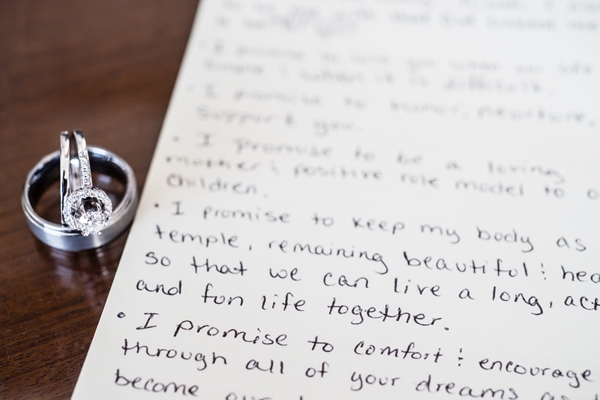 • I promise to love you when our life
simple & when it is difficult.
• I promise to honor, nourture,
support you.
• I promise to be a loving
mother & positive role model to o
children.
• I promise to keep my body as
temple, remaining beautiful & hea
so that we can live a long, act
and fun life together.
• I promise to comfort & encourage
through all of your dreams as
become our